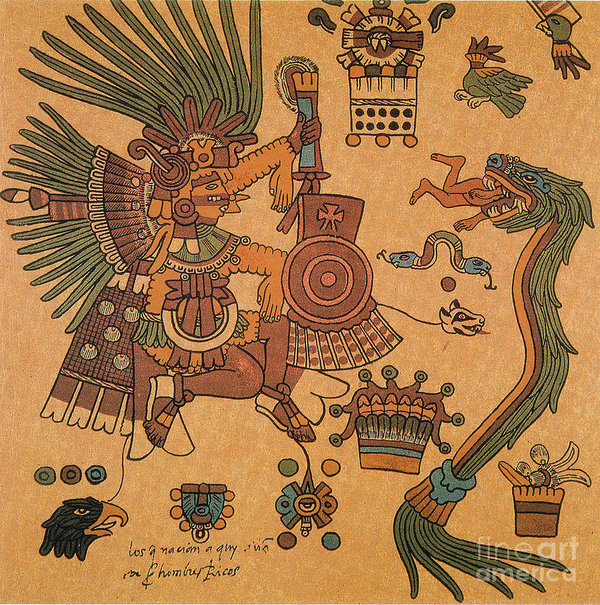 los q̃ nacian a quy
hombres Ricos
fineart
america